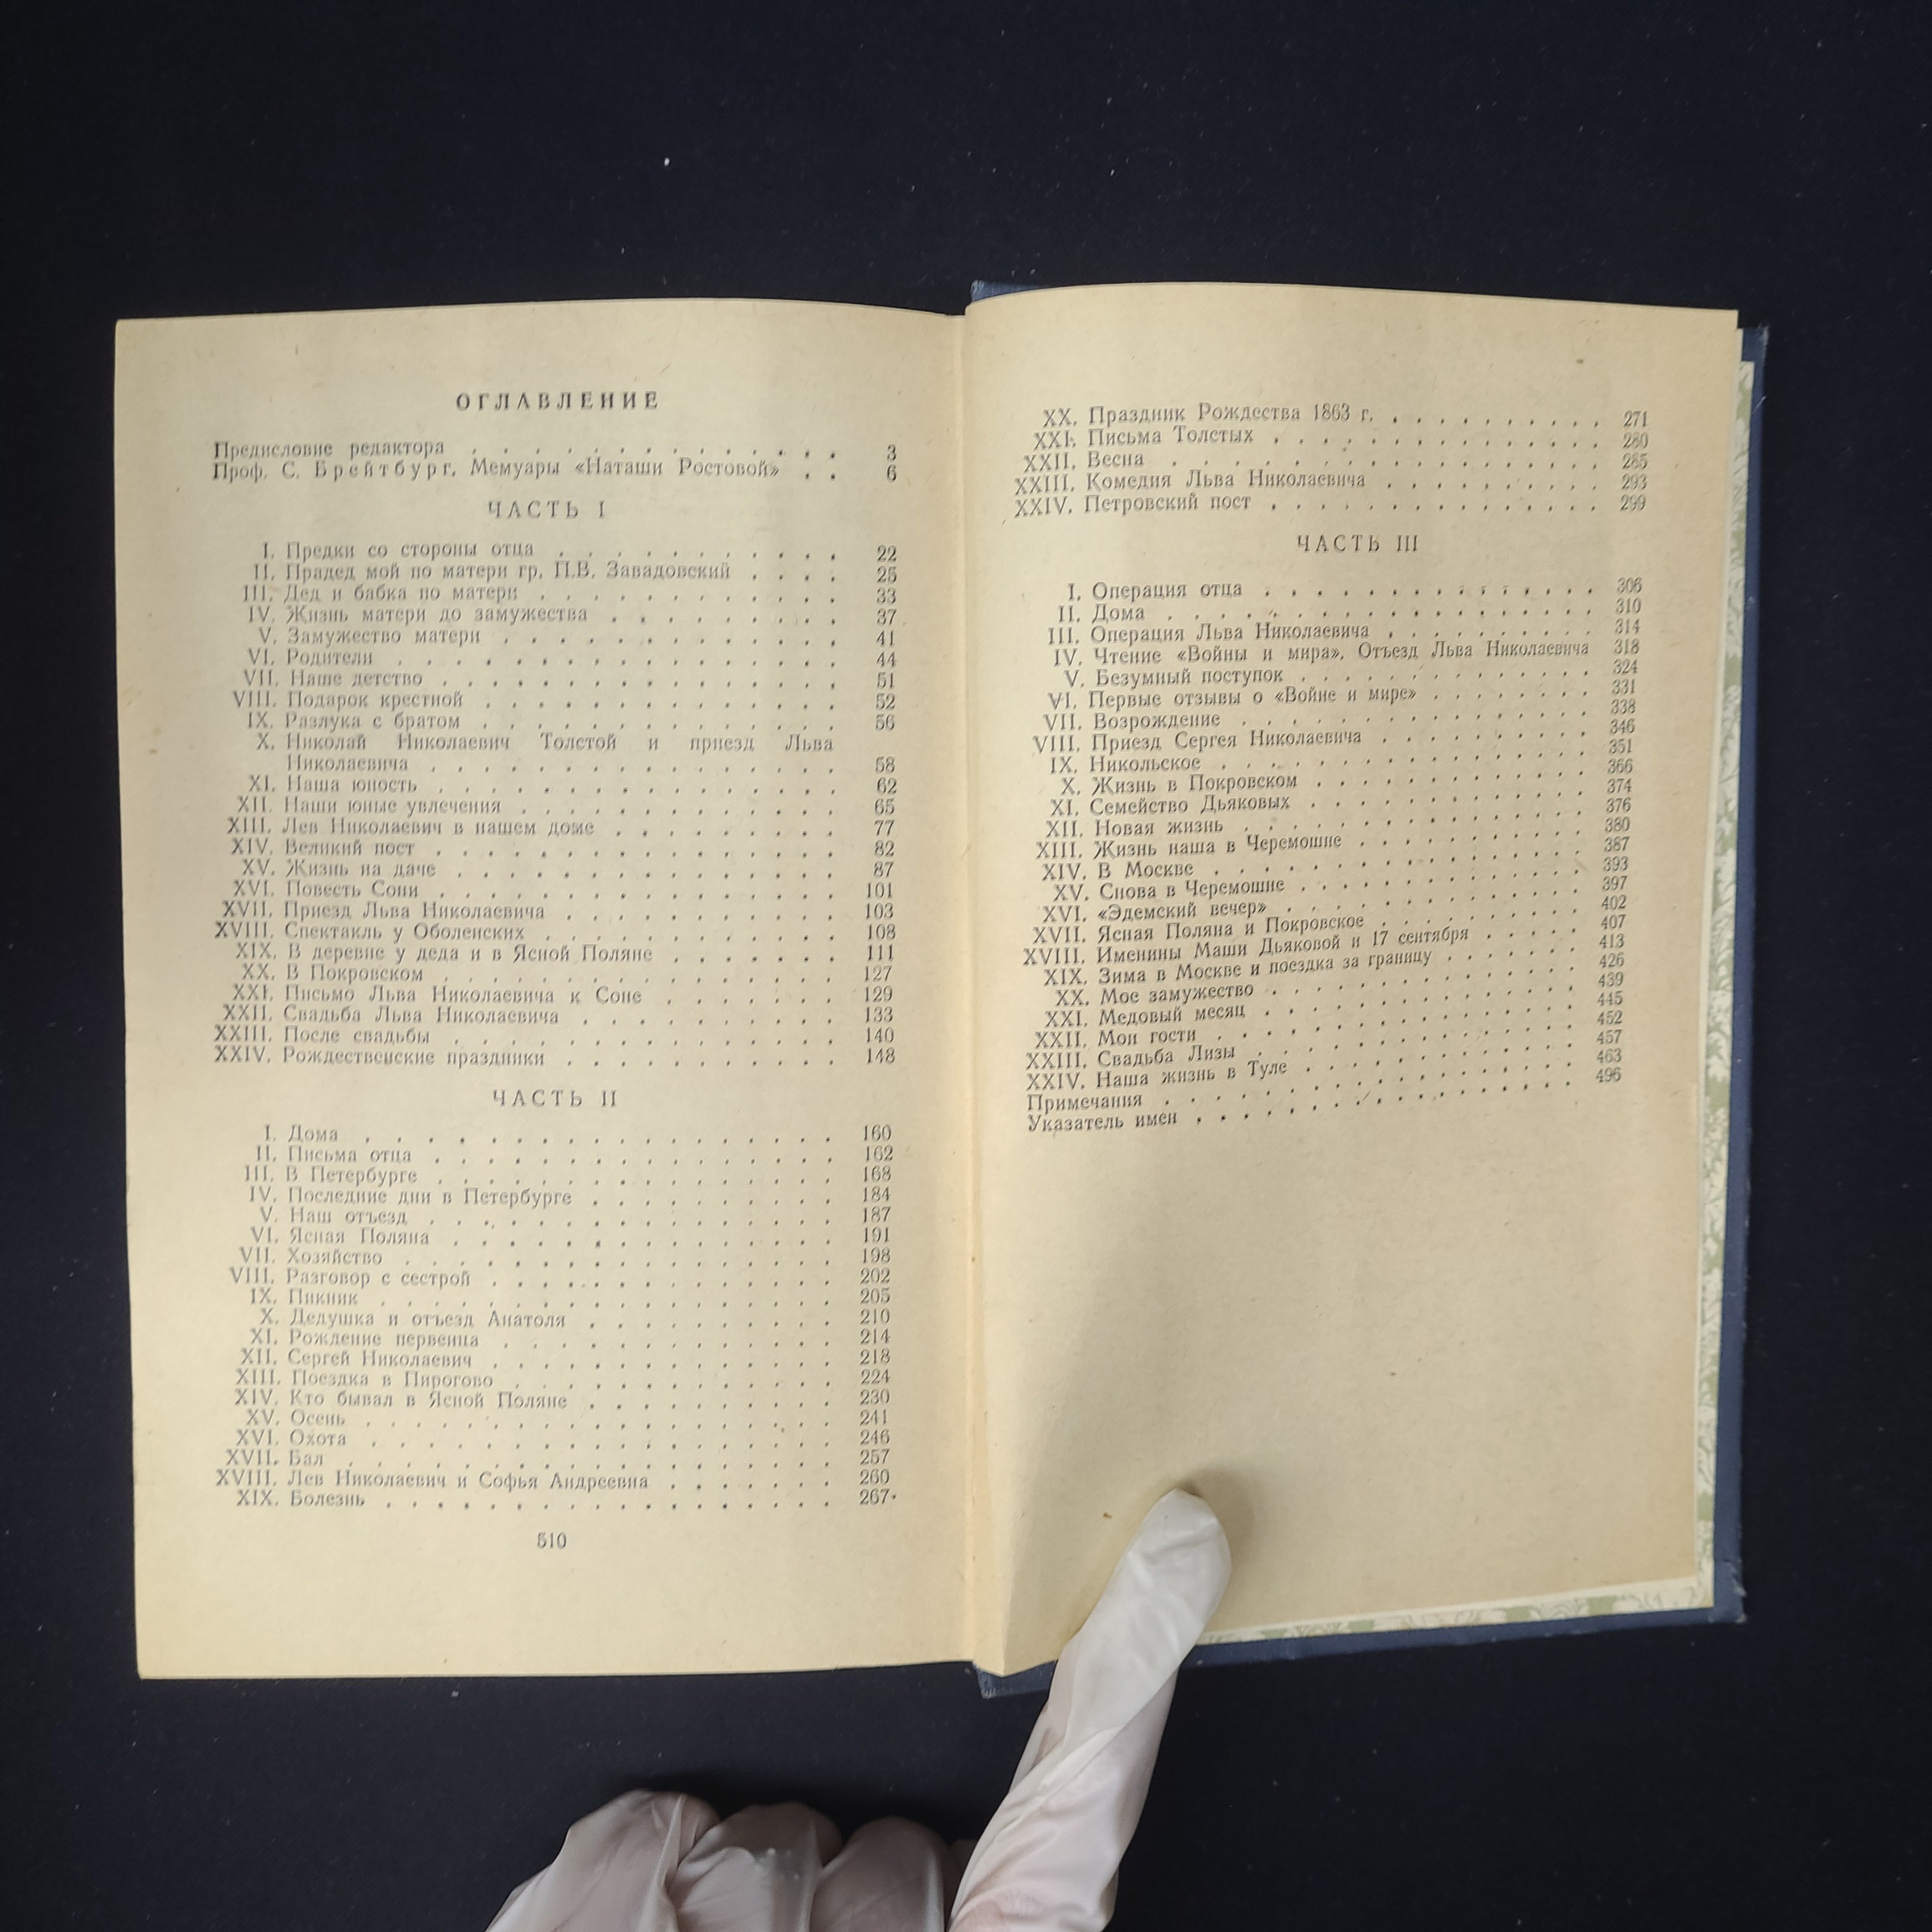 ОГЛАВЛЕНИЕ
Предисловие редактора . . . 3
Проф. С. Брейтбург. Мемуары «Наташи Ростовой» . . 6
ЧАСТЬ I
I. Предки со стороны отца . . . 22
II. Прадед мой по матери гр. П.В. Завадовский . . . 25
III. Дед и бабка по матери . . . 33
IV. Жизнь матери до замужества . . . 37
V. Замужество матери . . . 41
VI. Родители . . . 44
VII. Наше детство . . . 51
VIII. Подарок крестной . . . 52
IX. Разлука с братом . . . 56
X. Николай Николаевич Толстой и приезд Льва
Николаевича . . . 58
XI. Наша юность . . . 62
XII. Наши юные увлечения . . . 65
XIII. Лев Николаевич в нашем доме . . . 77
XIV. Великий пост . . . 82
XV. Жизнь на даче . . . 87
XVI. Повесть Сони . . . 101
XVII. Приезд Льва Николаевича . . . 103
XVIII. Спектакль у Оболенских . . . 108
XIX. В деревне у деда и в Ясной Поляне . . . 111
XX. В Покровском . . . 127
XXI. Письмо Льва Николаевича к Соне . . . 129
XXII. Свадьба Льва Николаевича . . . 133
XXIII. После свадьбы . . . 140
XXIV. Рождественские праздники . . . 148
ЧАСТЬ II
I. Дома . . . 160
II. Письма отца . . . 162
III. В Петербурге . . . 168
IV. Последние дни в Петербурге . . . 184
V. Наш отъезд . . . 187
VI. Ясная Поляна . . . 191
VII. Хозяйство . . . 198
VIII. Разговор с сестрой . . . 202
IX. Пикник . . . 205
X. Дедушка и отъезд Анатоля . . . 210
XI. Рождение первенца . . . 214
XII. Сергей Николаевич . . . 218
XIII. Поездка в Пирогово . . . 224
XIV. Кто бывал в Ясной Поляне . . . 230
XV. Осень . . . 241
XVI. Охота . . . 246
XVII. Бал . . . 257
XVIII. Лев Николаевич и Софья Андреевна . . . 260
XIX. Болезнь . . . 267
510
XX. Праздник Рождества 1863 г. . . . 271
XXI. Письма Толстых . . . 280
XXII. Весна . . . 285
XXIII. Комедия Льва Николаевича . . . 293
XXIV. Петровский пост . . . 299
ЧАСТЬ III
I. Операция отца . . . 306
II. Дома . . . 310
III. Операция Льва Николаевича . . . 314
IV. Чтение «Войны и мира». Отъезд Льва Николаевича 318
V. Безумный поступок . . . 324
VI. Первые отзывы о «Войне и мире» . . . 331
VII. Возрождение . . . 338
VIII. Приезд Сергея Николаевича . . . 346
IX. Никольское . . . 351
X. Жизнь в Покровском . . . 366
XI. Семейство Дьяковых . . . 374
XII. Новая жизнь . . . 376
XIII. Жизнь наша в Черемошне . . . 380
XIV. В Москве . . . 387
XV. Снова в Черемошне . . . 393
XVI. «Эдемский вечер» . . . 397
XVII. Ясная Поляна и Покровское . . . 402
XVIII. Именины Маши Дьяковой и 17 сентября . . . 407
XIX. Зима в Москве и поездка за границу . . . 413
XX. Мое замужество . . . 426
XXI. Медовый месяц . . . 439
XXII. Мои гости . . . 445
XXIII. Свадьба Лизы . . . 452
XXIV. Наша жизнь в Туле . . . 457
Примечания . . . 463
Указатель имен . . . 496